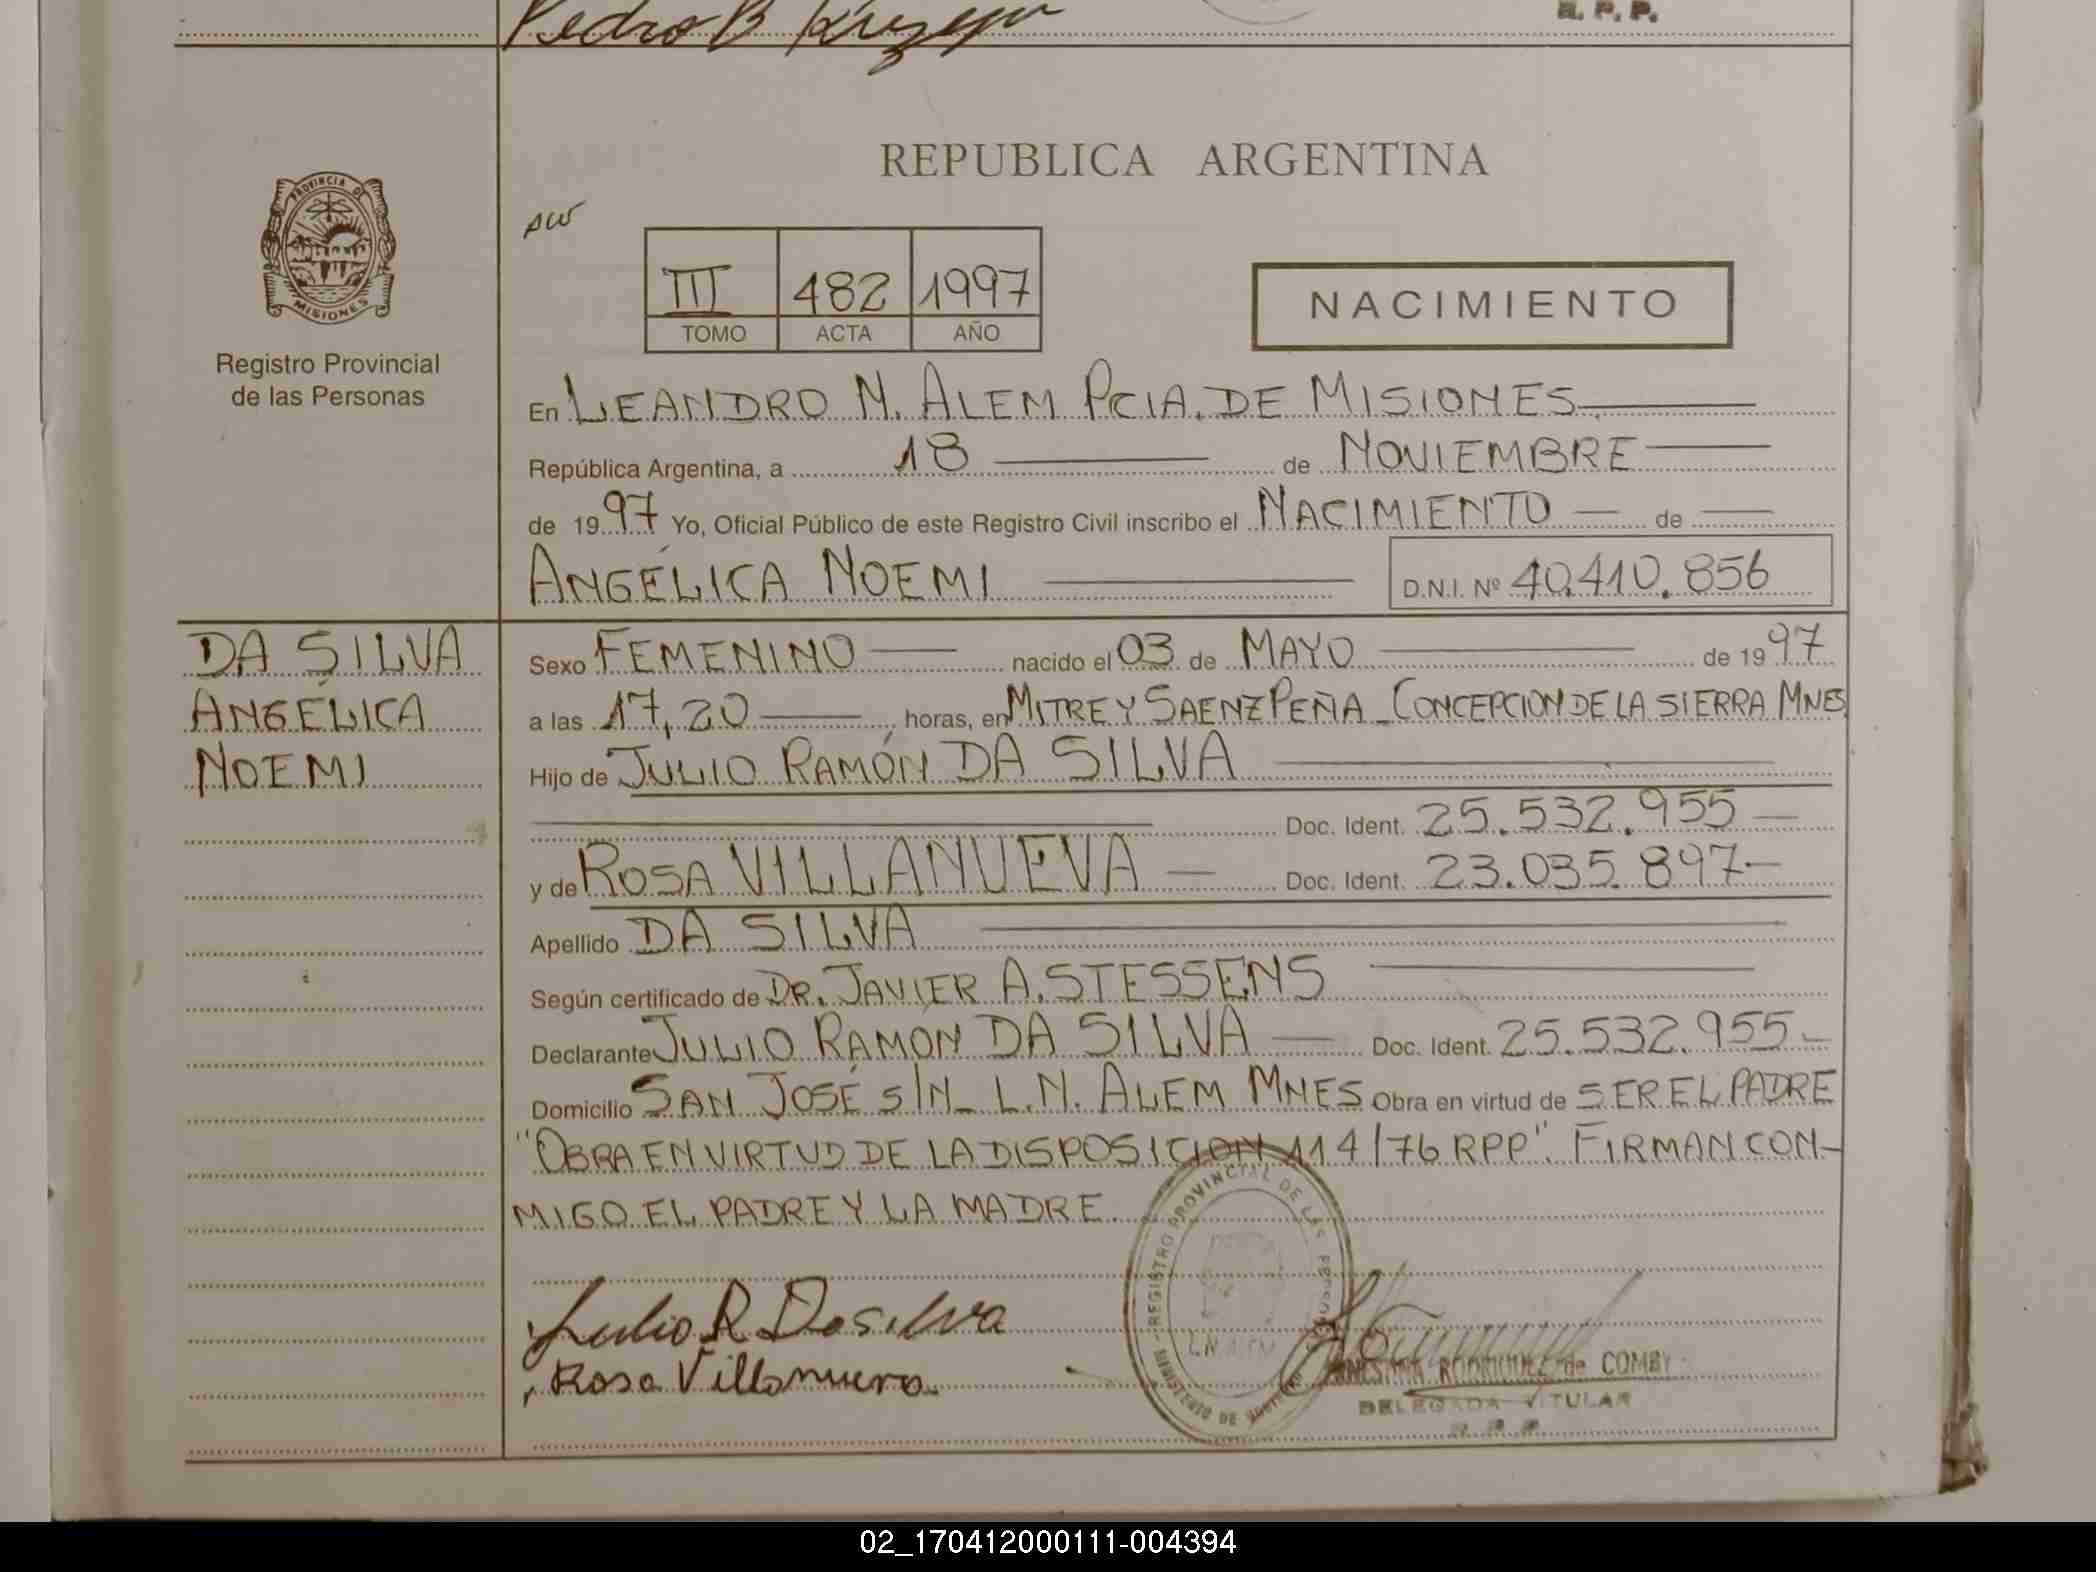 Pedro B
R. P. P.
PROVINCIA DE
MISIONES
Registro Provincial
de las Personas
REPUBLICA ARGENTINA
AW
III 482 1997
TOMO ACTA AÑO
NACIMIENTO
En LEANDRO N. ALEM PCIA. DE MISIONES
República Argentina, a 18 de NOVIEMBRE
de 1997 Yo, Oficial Público de este Registro Civil inscribo el NACIMIENTO de
ANGÉLICA NOEMI D.N.I. Nº 40.410.856
DA SILVA
ANGÉLICA
NOEMI
Sexo FEMENINO nacido el 03 de MAYO de 1997
a las 17,20 horas, en MITRE Y SAENZ PEÑA _ CONCEPCION DE LA SIERRA MNES
Hijo de JULIO RAMÓN DA SILVA
Doc. Ident. 25.532.955
y de ROSA VILLANUEVA Doc. Ident. 23.035.897
Apellido DA SILVA
Según certificado de DR. JAVIER A. STESSENS
Declarante JULIO RAMÓN DA SILVA Doc. Ident. 25.532.955
Domicilio SAN JOSÉ S/N_ L.N. ALEM MNES Obra en virtud de SER EL PADRE
"OBRA EN VIRTUD DE LA DISPOSICION 114/76 RPP". FIRMAN CON-
MIGO EL PADRE Y LA MADRE
REGISTRO PROVINCIAL DE LAS
MINISTERIO DE
Julio R Dasilva
Rosa Villanueva
RODRIGUEZ de COMBY
DELEGADA TITULAR
R. P. P.
02_170412000111-004394